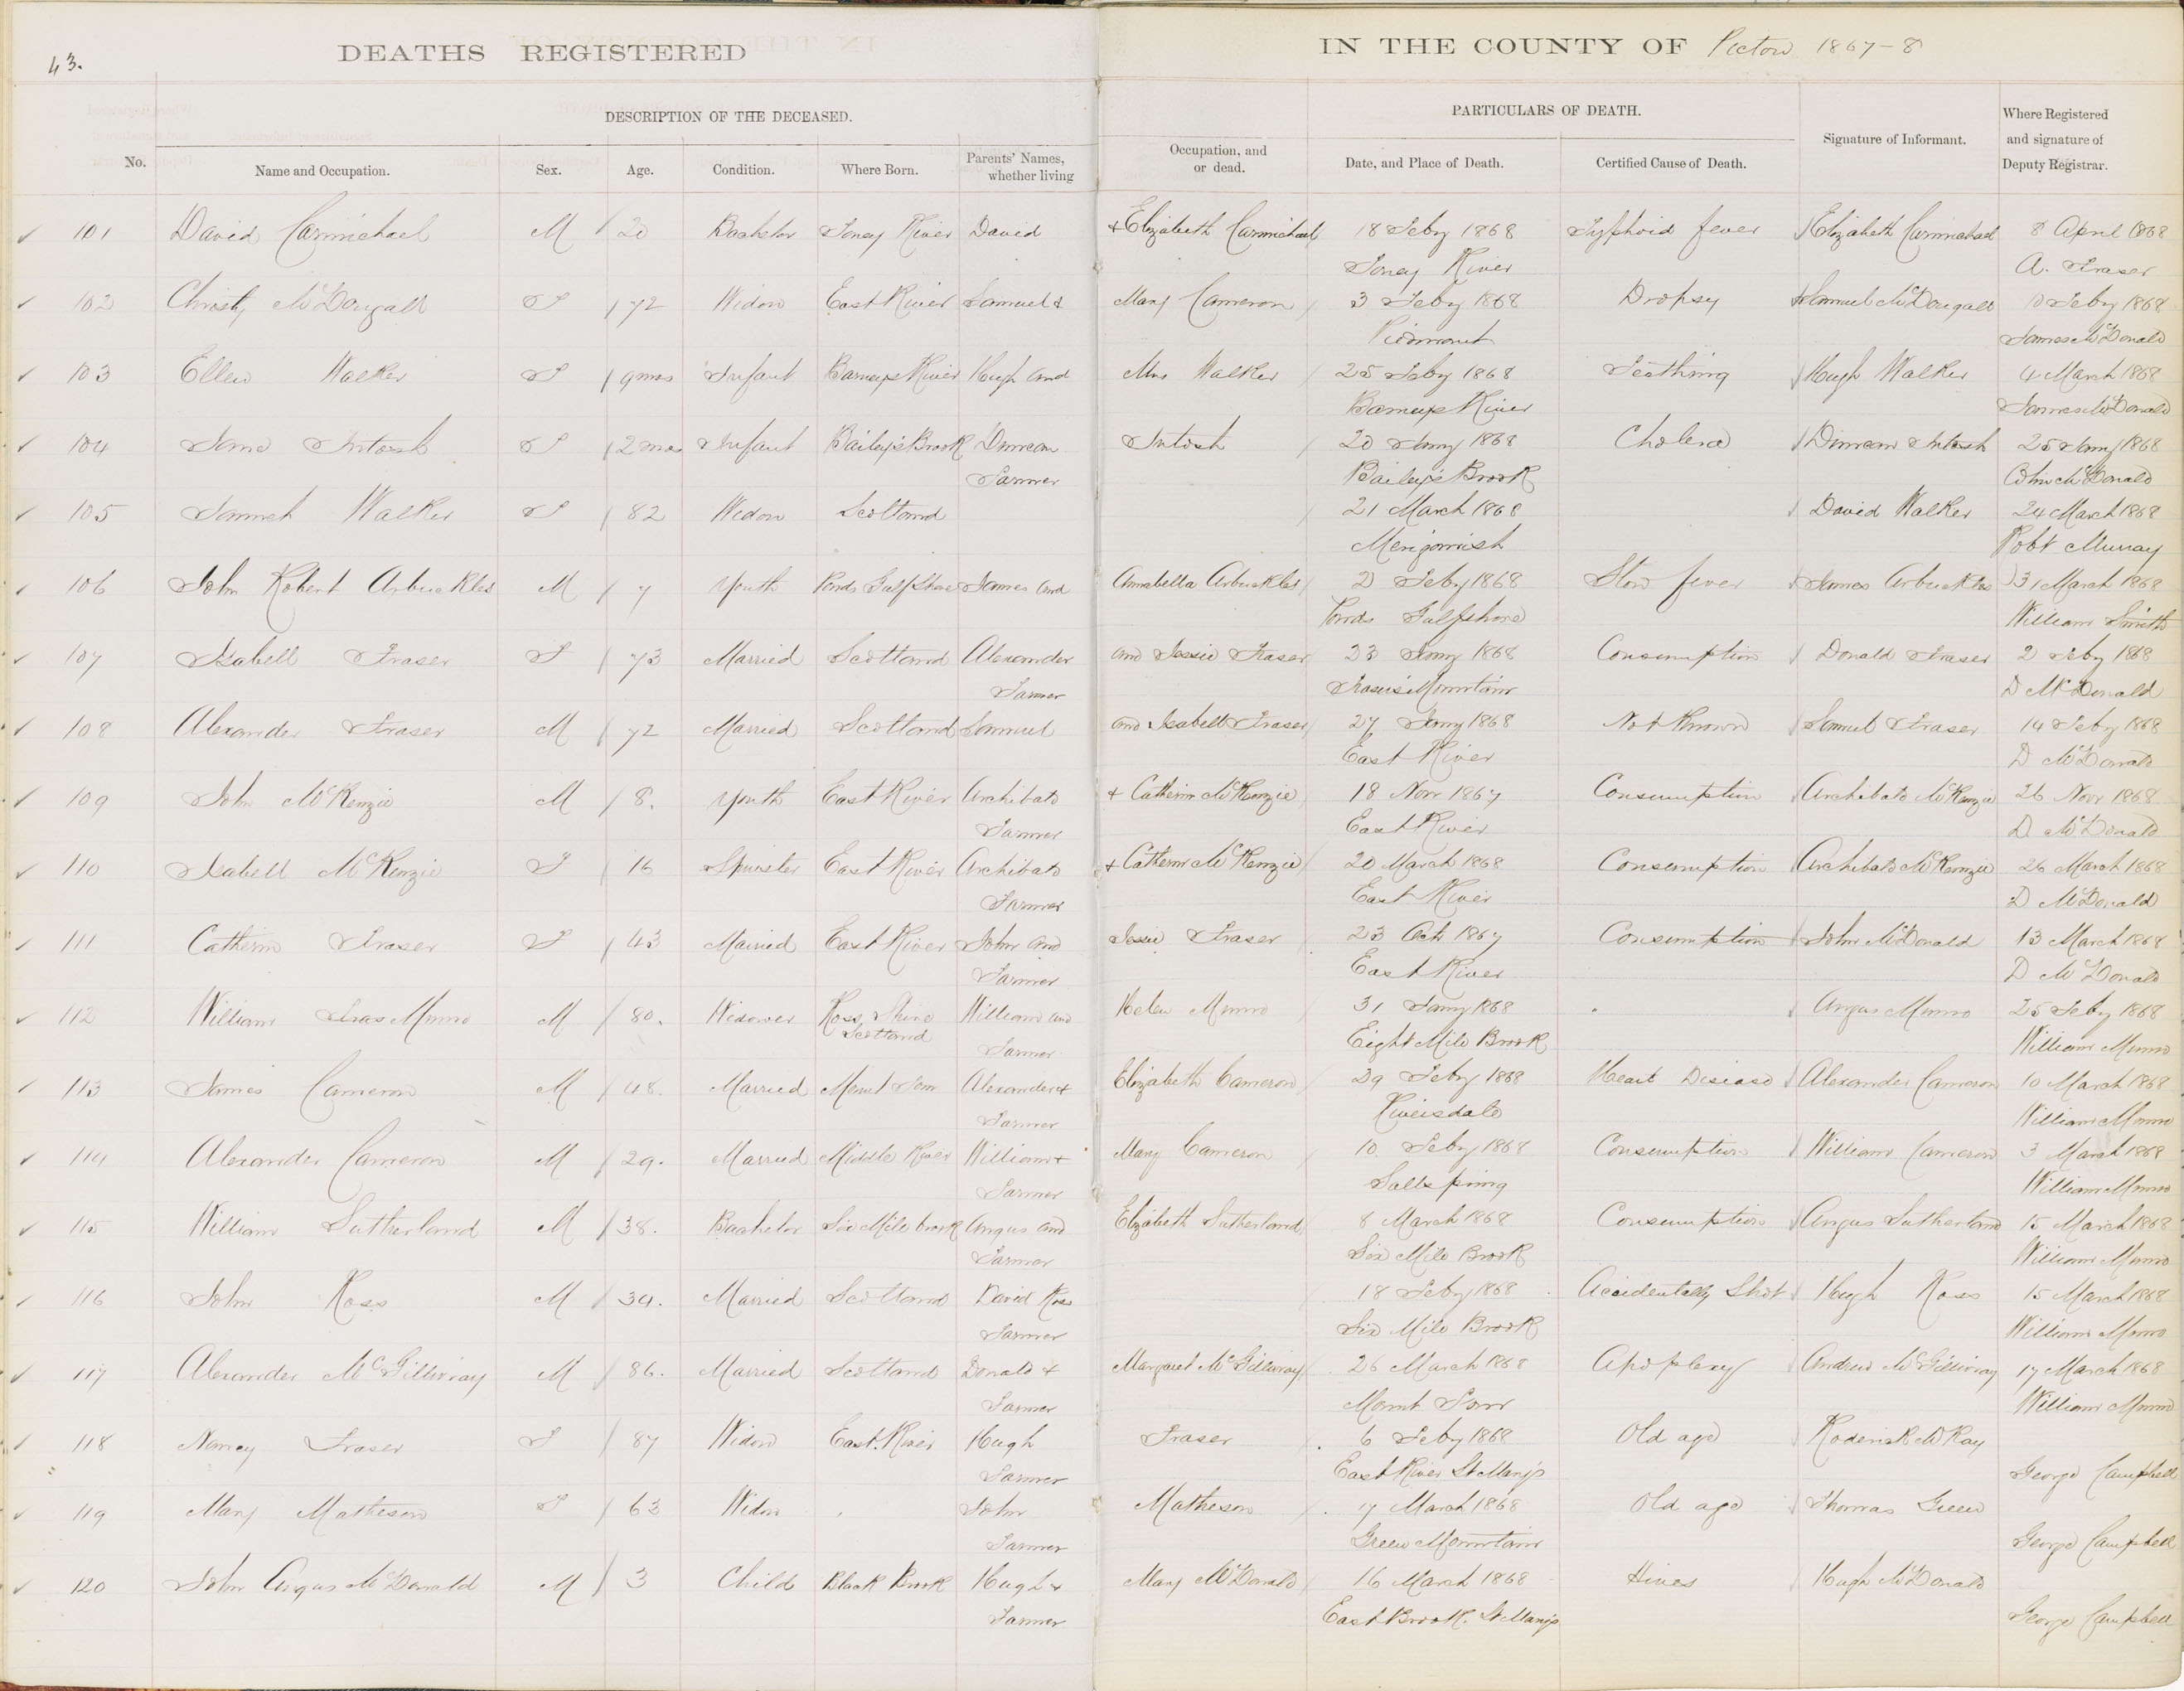 43.
DEATHS REGISTERED IN THE COUNTY OF Pictou 1867-8
DESCRIPTION OF THE DECEASED. PARTICULARS OF DEATH.
No. Name and Occupation. Sex. Age. Condition. Where Born. Parents' Names, whether living Occupation, and or dead. Date, and Place of Death. Certified Cause of Death. Signature of Informant. Where Registered and signature of Deputy Registrar.
101 David Carmichael M 20 Bachelor Toney River David + Elizabeth Carmichael 18 Feby 1868 Typhoid fever Elizabeth Carmichael 8 April 1868
Toney River A. Fraser
102 Christy McDougall F 72 Widow East River Samuel + Mary Cameron 3 Feby 1868 Dropsy Samuel McDougall 10 Feby 1868
Piedmont James McDonald
103 Ellen Walker F 9 mos Infant Barneys River Hugh and Mrs Walker 25 Feby 1868 Teething Hugh Walker 4 March 1868
Barneys River James McDonald
104 Jane Intosh F 2 mos Infant Bailey's Brook Duncan Intosh 20 Jany 1868 Cholera Duncan Intosh 25 Jany 1868
Farmer Bailey's Brook McDonald
105 Walker F 82 Widow Scotland 21 March 1868 David Walker 24 March 1868
Merigomish Robt Murray
106 John Robert Arbuckles M 7 Youth Ponds Gulf Shore James and Annabella Arbuckles 2 Feby 1868 Slow fever James Arbuckles 31 March 1868
Ponds Gulfshore William Smith
107 Isabell Fraser F 73 Married Scotland Alexander and Jessie Fraser 23 Jany 1868 Consumption Donald Fraser 2 Feby 1868
Farmer Fraser's Mountain D McDonald
108 Alexander Fraser M 72 Married Scotland Samuel and Isabell Fraser 27 Jany 1868 Not Known Samuel Fraser 14 Feby 1868
East River D McDonald
109 John McKenzie M 8. Youth East River Archibald + Catherin McKenzie 18 Novr 1867 Consumption Archibald McKenzie 26 Novr 1868
Farmer East River D McDonald
110 Isabell McKenzie F 16 Spinster East River Archibald + Catherin McKenzie 20 March 1868 Consumption Archibald McKenzie 26 March 1868
Farmer East River D McDonald
111 Catherin Fraser F 43 Married East River John and Jessie Fraser 23 Oct 1867 Consumption John McDonald 13 March 1868
Farmer East River D McDonald
112 William Munro M 80. Widower Ross Shire William and Helen Munro 31 Jany 1868 Angus Munro 25 Feby 1868
Scotland Farmer Eight Mile Brook William Munro
113 James Cameron M 48. Married Mount Tom Alexander + Elizabeth Cameron 29 Feby 1868 Heart Disease Alexander Cameron 10 March 1868
Farmer Riversdale William Munro
114 Alexander Cameron M 29. Married Middle River William + Mary Cameron 10 Feby 1868 Consumption William Cameron 3 March 1868
Farmer Saltspring William Munro
115 William Sutherland M 38. Bachelor Six Mile brook Angus and Elizabeth Sutherland 8 March 1868 Consumption Angus Sutherland 15 March 1868
Farmer Six Mile Brook William Munro
116 John Ross M 39. Married Scotland David Ross 18 Feby 1868 Accidentally Shot Hugh Ross 15 March 1868
Farmer Six Mile Brook William Munro
117 Alexander McGillivray M 86. Married Scotland Donald + Margaret McGillivray 26 March 1868 Apoplexy Andrew McGillivray 17 March 1868
Farmer Mount Tom William Munro
118 Nancy Fraser F 87 Widow East River Hugh Fraser 6 Feby 1868 Old age Roderick McKay
Farmer East River St Marys George Campbell
119 Mary Matheson F 63 Widow John Matheson 17 March 1868 Old age Thomas Green
Farmer Green Mountain George Campbell
120 John Angus McDonald M 3 Child Black Brook Hugh + Mary McDonald 16 March 1868 Hives Hugh McDonald
Farmer East Brook. St Marys George Campbell